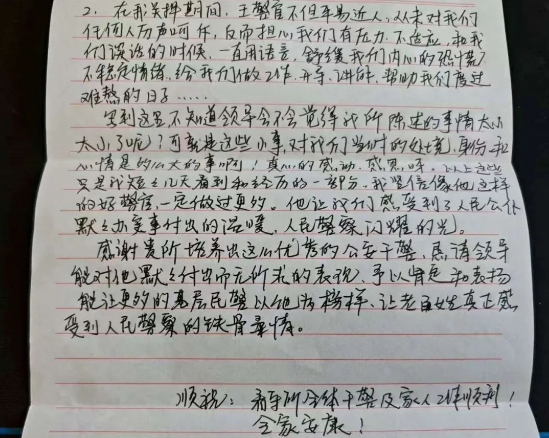 2、在我关押期间,王警官不但平易近人,从未对我们
任何人厉声呵斥,反而担心我们有压力、不适应,和我
们谈话的时候,一直用语言,舒缓我们内心的恐慌
不稳定情绪,给我们做工作,开导,讲解,帮助我们度过
难熬的日子……
写到这里不知道领导会不会觉得我所陈述的事情太小
太小了呢?可就是这些小事,对我们当时的处境,身份和
心情是多么大的事啊!真心的感动、感恩呀,以上这些
只是我短短几天看到和经历的一部分,我坚信像他这样
的好警官,一定做过更多的。他让我们感受到了人民公仆
默默办实事付出的温暖,人民警察闪耀的光。
感谢贵所培养出这么优秀的公安干警,恳请领导
能对他默默付出而无所求的表现,予以肯定和表扬
能让更多的基层民警以他为榜样,让老百姓真正感
受到人民警察的铁骨柔情。
顺祝:看守所全体干警及家人工作顺利!
全家安康!